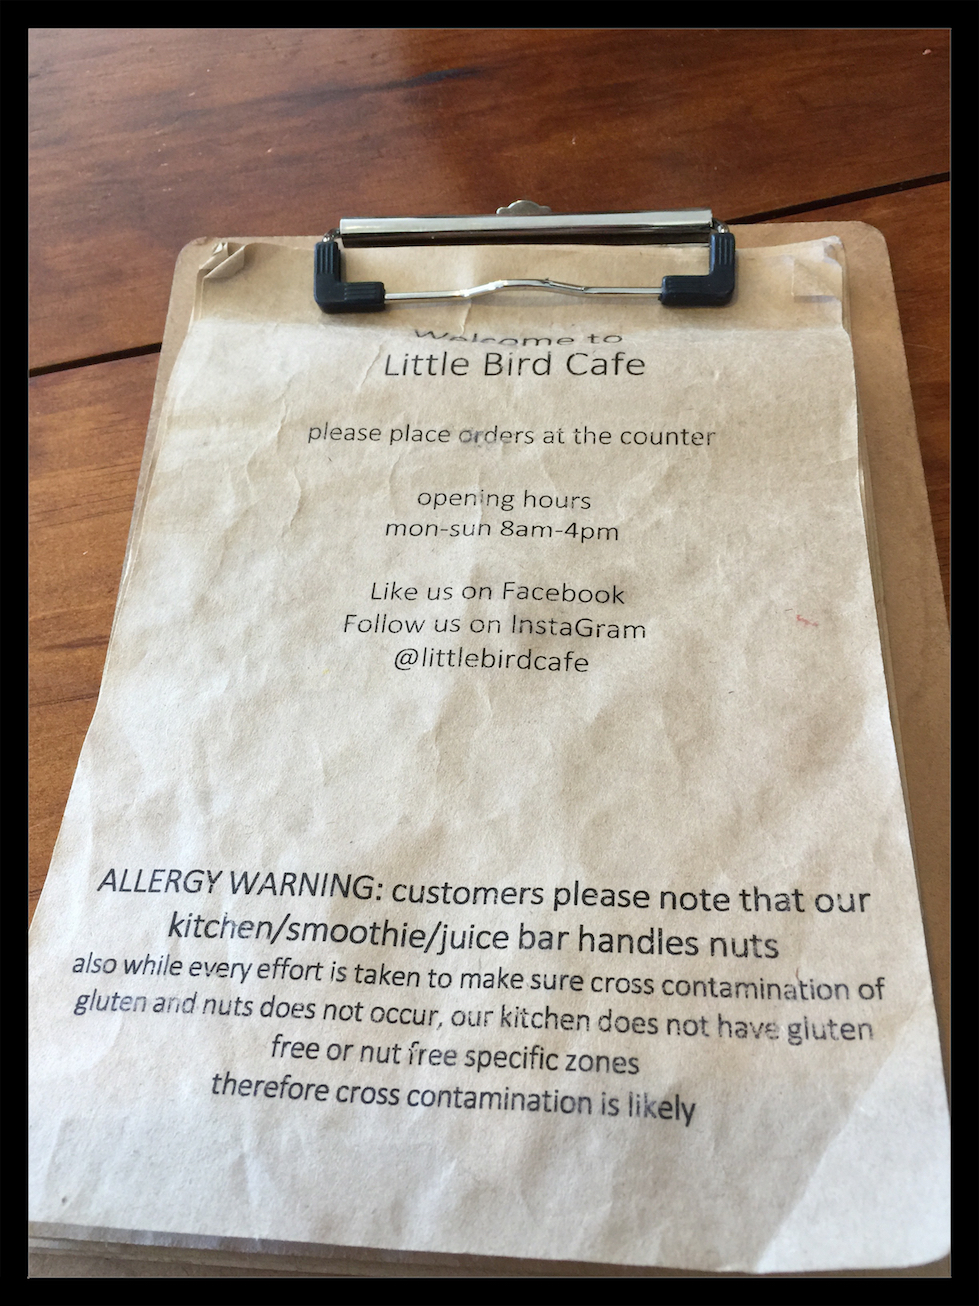 Welcome to
Little Bird Cafe
please place orders at the counter
opening hours
mon-sun 8am-4pm
Like us on Facebook
Follow us on InstaGram
@littlebirdcafe
ALLERGY WARNING: customers please note that our
kitchen/smoothie/juice bar handles nuts
also while every effort is taken to make sure cross contamination of
gluten and nuts does not occur, our kitchen does not have gluten
free or nut free specific zones
therefore cross contamination is likely